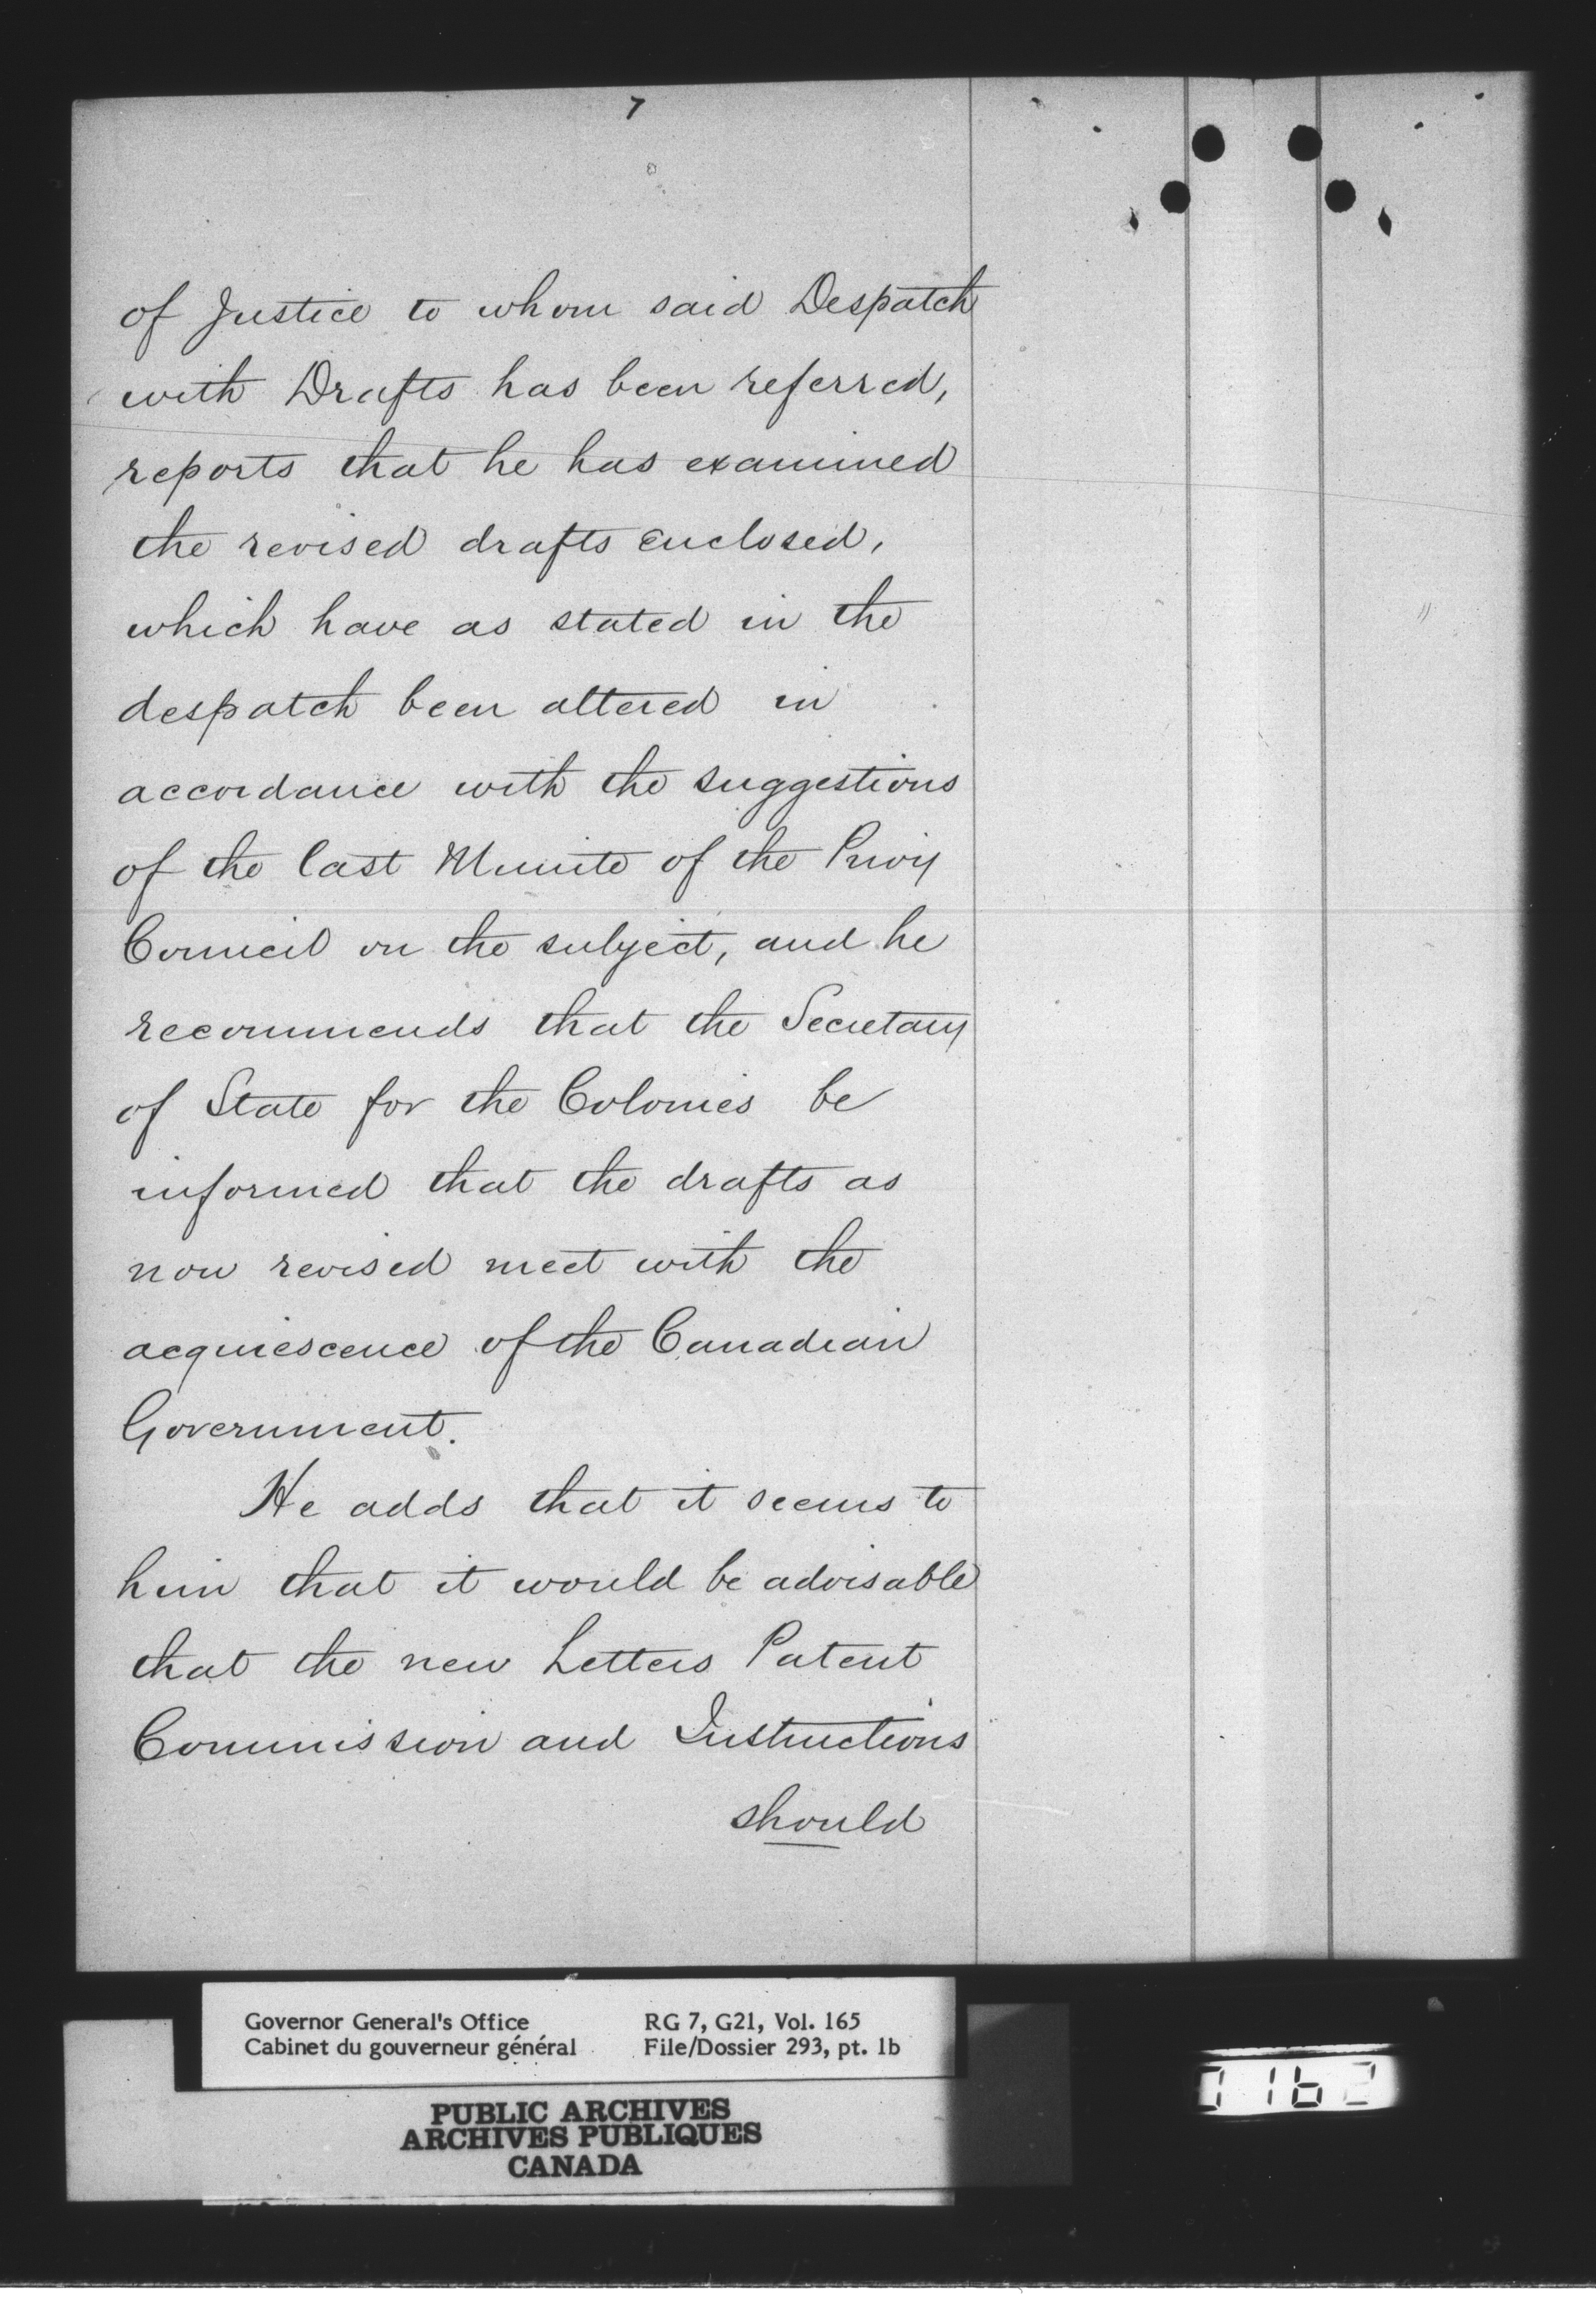 7
of Justice to whom said Despatch
with Drafts has been referred,
reports that he has examined
the revised drafts enclosed,
which have as stated in the
despatch been altered in
accordance with the suggestions
of the last Minute of the Privy
Council on the subject, and he
recommends that the Secretary
of State for the Colonies be
informed that the drafts as
now revised meet with the
acquiescence of the Canadian
Government.
He adds that it seems to
him that it would be advisable
that the new Letters Patent
Commission and Instructions
should
Governor General's Office RG 7, G21, Vol. 165
Cabinet du gouverneur général File/Dossier 293, pt. 1b
PUBLIC ARCHIVES
ARCHIVES PUBLIQUES
CANADA